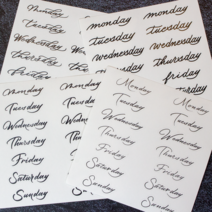 monday
tuesday
wednesday
thursday
friday
monday
tuesday
wednesday
thursday
friday
Monday
Tuesday
Wednesday
Thursday
Friday
Saturday
Sunday
Monday
Tuesday
Wednesday
Thursday
Friday
Saturday
Sunday
Monday
Tuesday
Wednesday
Thursday
Friday
Saturday
Sunday
Monday
Tuesday
Wednesday
Thursday
Friday
Saturday
Sunday